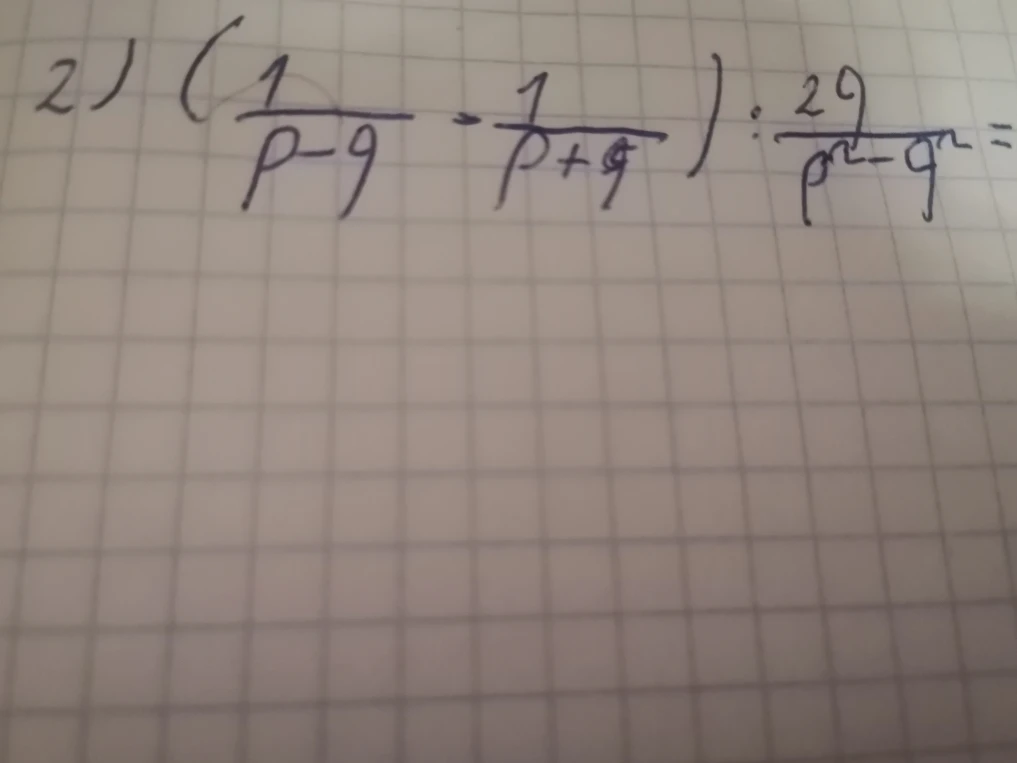 2) (1/(p-q) - 1/(p+q)) : 2q/(p²-q²) =